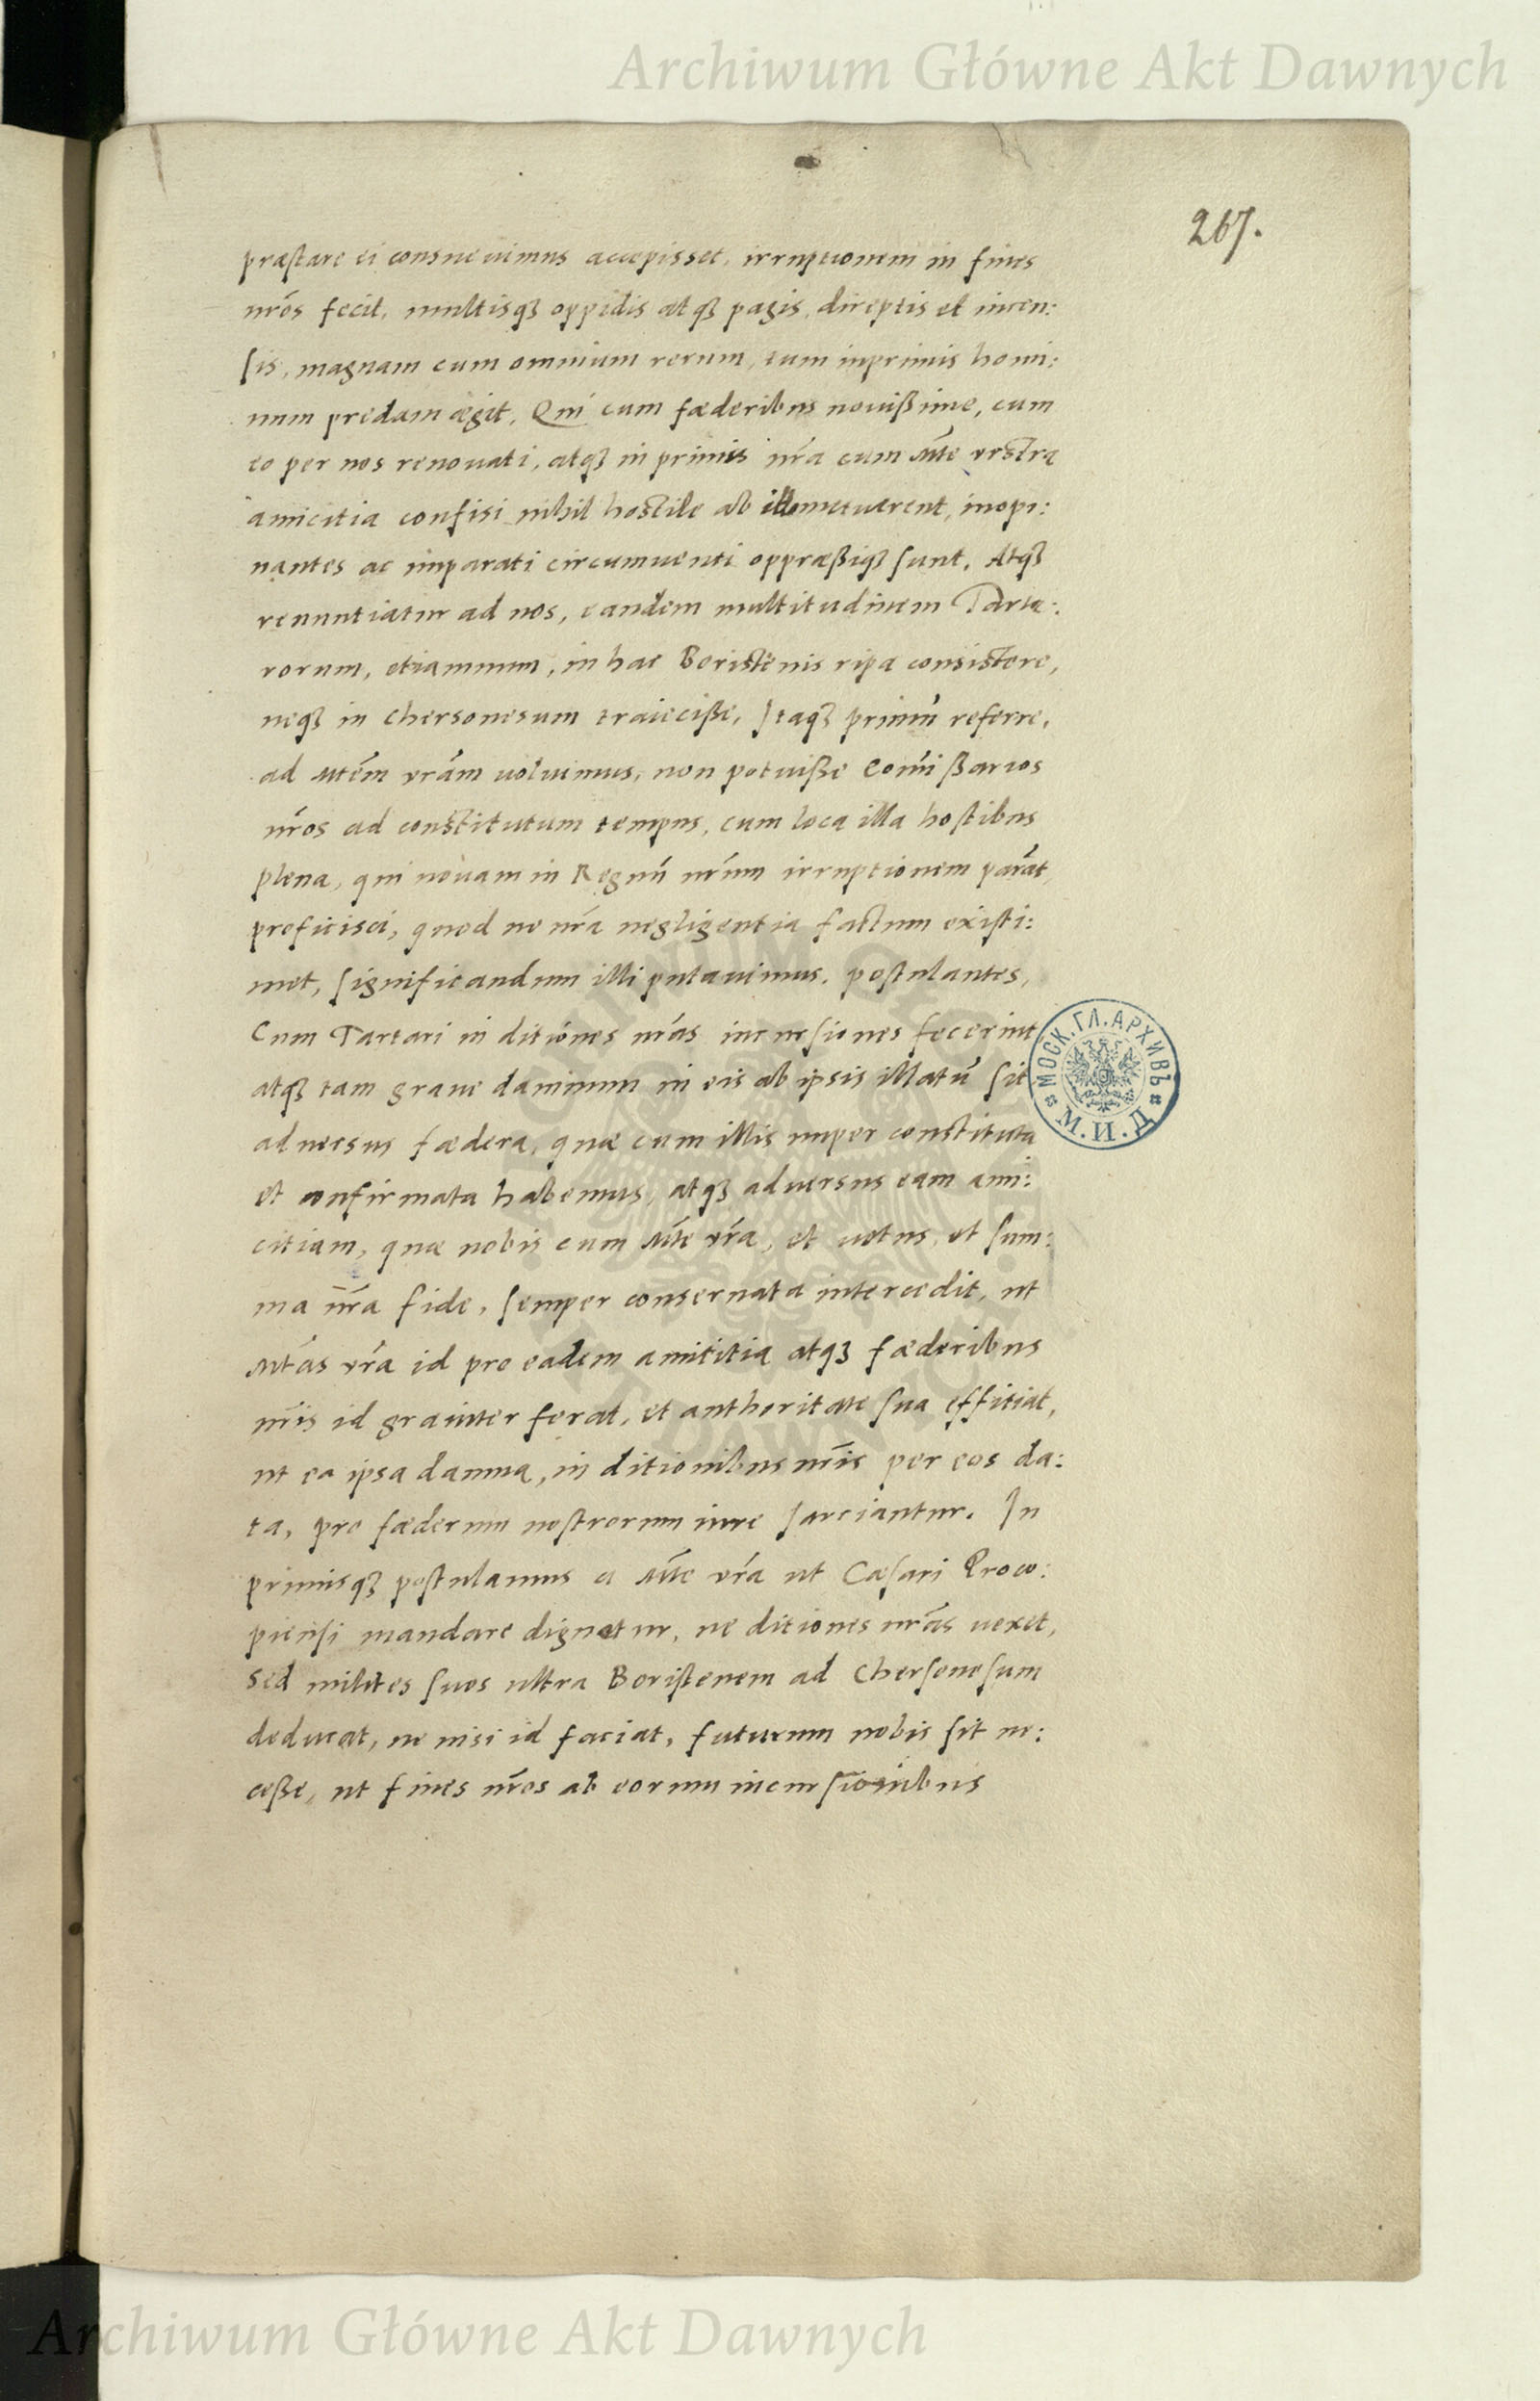 Archiwum Główne Akt Dawnych
267.
præstare ei consueuimus accepisset, irruptionem in fines
nr̃os fecit, multisqȝ oppidis atqȝ pagis, direptis et incen:
sis, magnam cum omnium rerum, tum inprimis homi:
num predam ægit. Qui cum fæderibus nouißime, cum
eo per nos renouati, atqȝ in primis nr̃a cum Mte vrstra
amicitia confisi nihil hostile ab illo metuerent, inopi:
nantes ac imparati circumuenti oppræßiqȝ sunt. Atqȝ
renuntiatur ad nos, eandem multitudinem Tarta:
rorum, etiamnum, in hac Boristenis ripa consistere,
neqȝ in Chersonesum traiecißе, Itaqȝ primũ referre,
ad Mtem vram uoluimus, non potuiße Com̃ißarios
nr̃os ad constitutum tempus, cum loca illa hostibus
plena, qui nouam in Regnũ nr̃um irruptionem parãt,
proficisci, quod ne nr̃a negligentia factum existi:
met, significandum illi putauimus. postulantes,
Cum Tartari in ditiones nr̃as incursiones fecerint
atqȝ tam graue damnum in eis ab ipsis illatũ sit
aduersus fædera, quæ cum illis nuper constituta
et confirmata habemus, atqȝ aduersus eam ami:
citiam, quæ nobis cum Mte vr̃a, et uetus, et sum:
ma nr̃a fide, semper conseruata intercedit, ut
Mtas vr̃a id pro eadem amicitia atqȝ fæderibus
nr̃is id grauiter ferat, et authoritate sua efficiat,
ut ea ipsa damna, in ditionibus nr̃is per eos da:
ta, pro fæderum nostrorum iure sarciantur. In
primisqȝ postulamus a Mte vr̃a ut Cæsari Proco:
piensi mandare dignetur, ne ditiones nr̃as uexet,
sed milites suos ultra Boristenem ad Chersonesum
deducat, ne nisi id faciat, futurum nobis sit ne:
ceße, ut fines nr̃os ab eorum incursionibus
МОСК. ГЛ. АРХИВЪ
М. И. Д.
Archiwum Główne Akt Dawnych